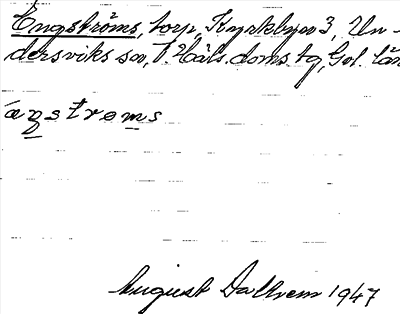 Engströms, torp, Kyrkbyn 3, Un-
dersviks sn, V. Häls. doms. tg, Gvl. län
äŋstrøms
August Dalhem 1947